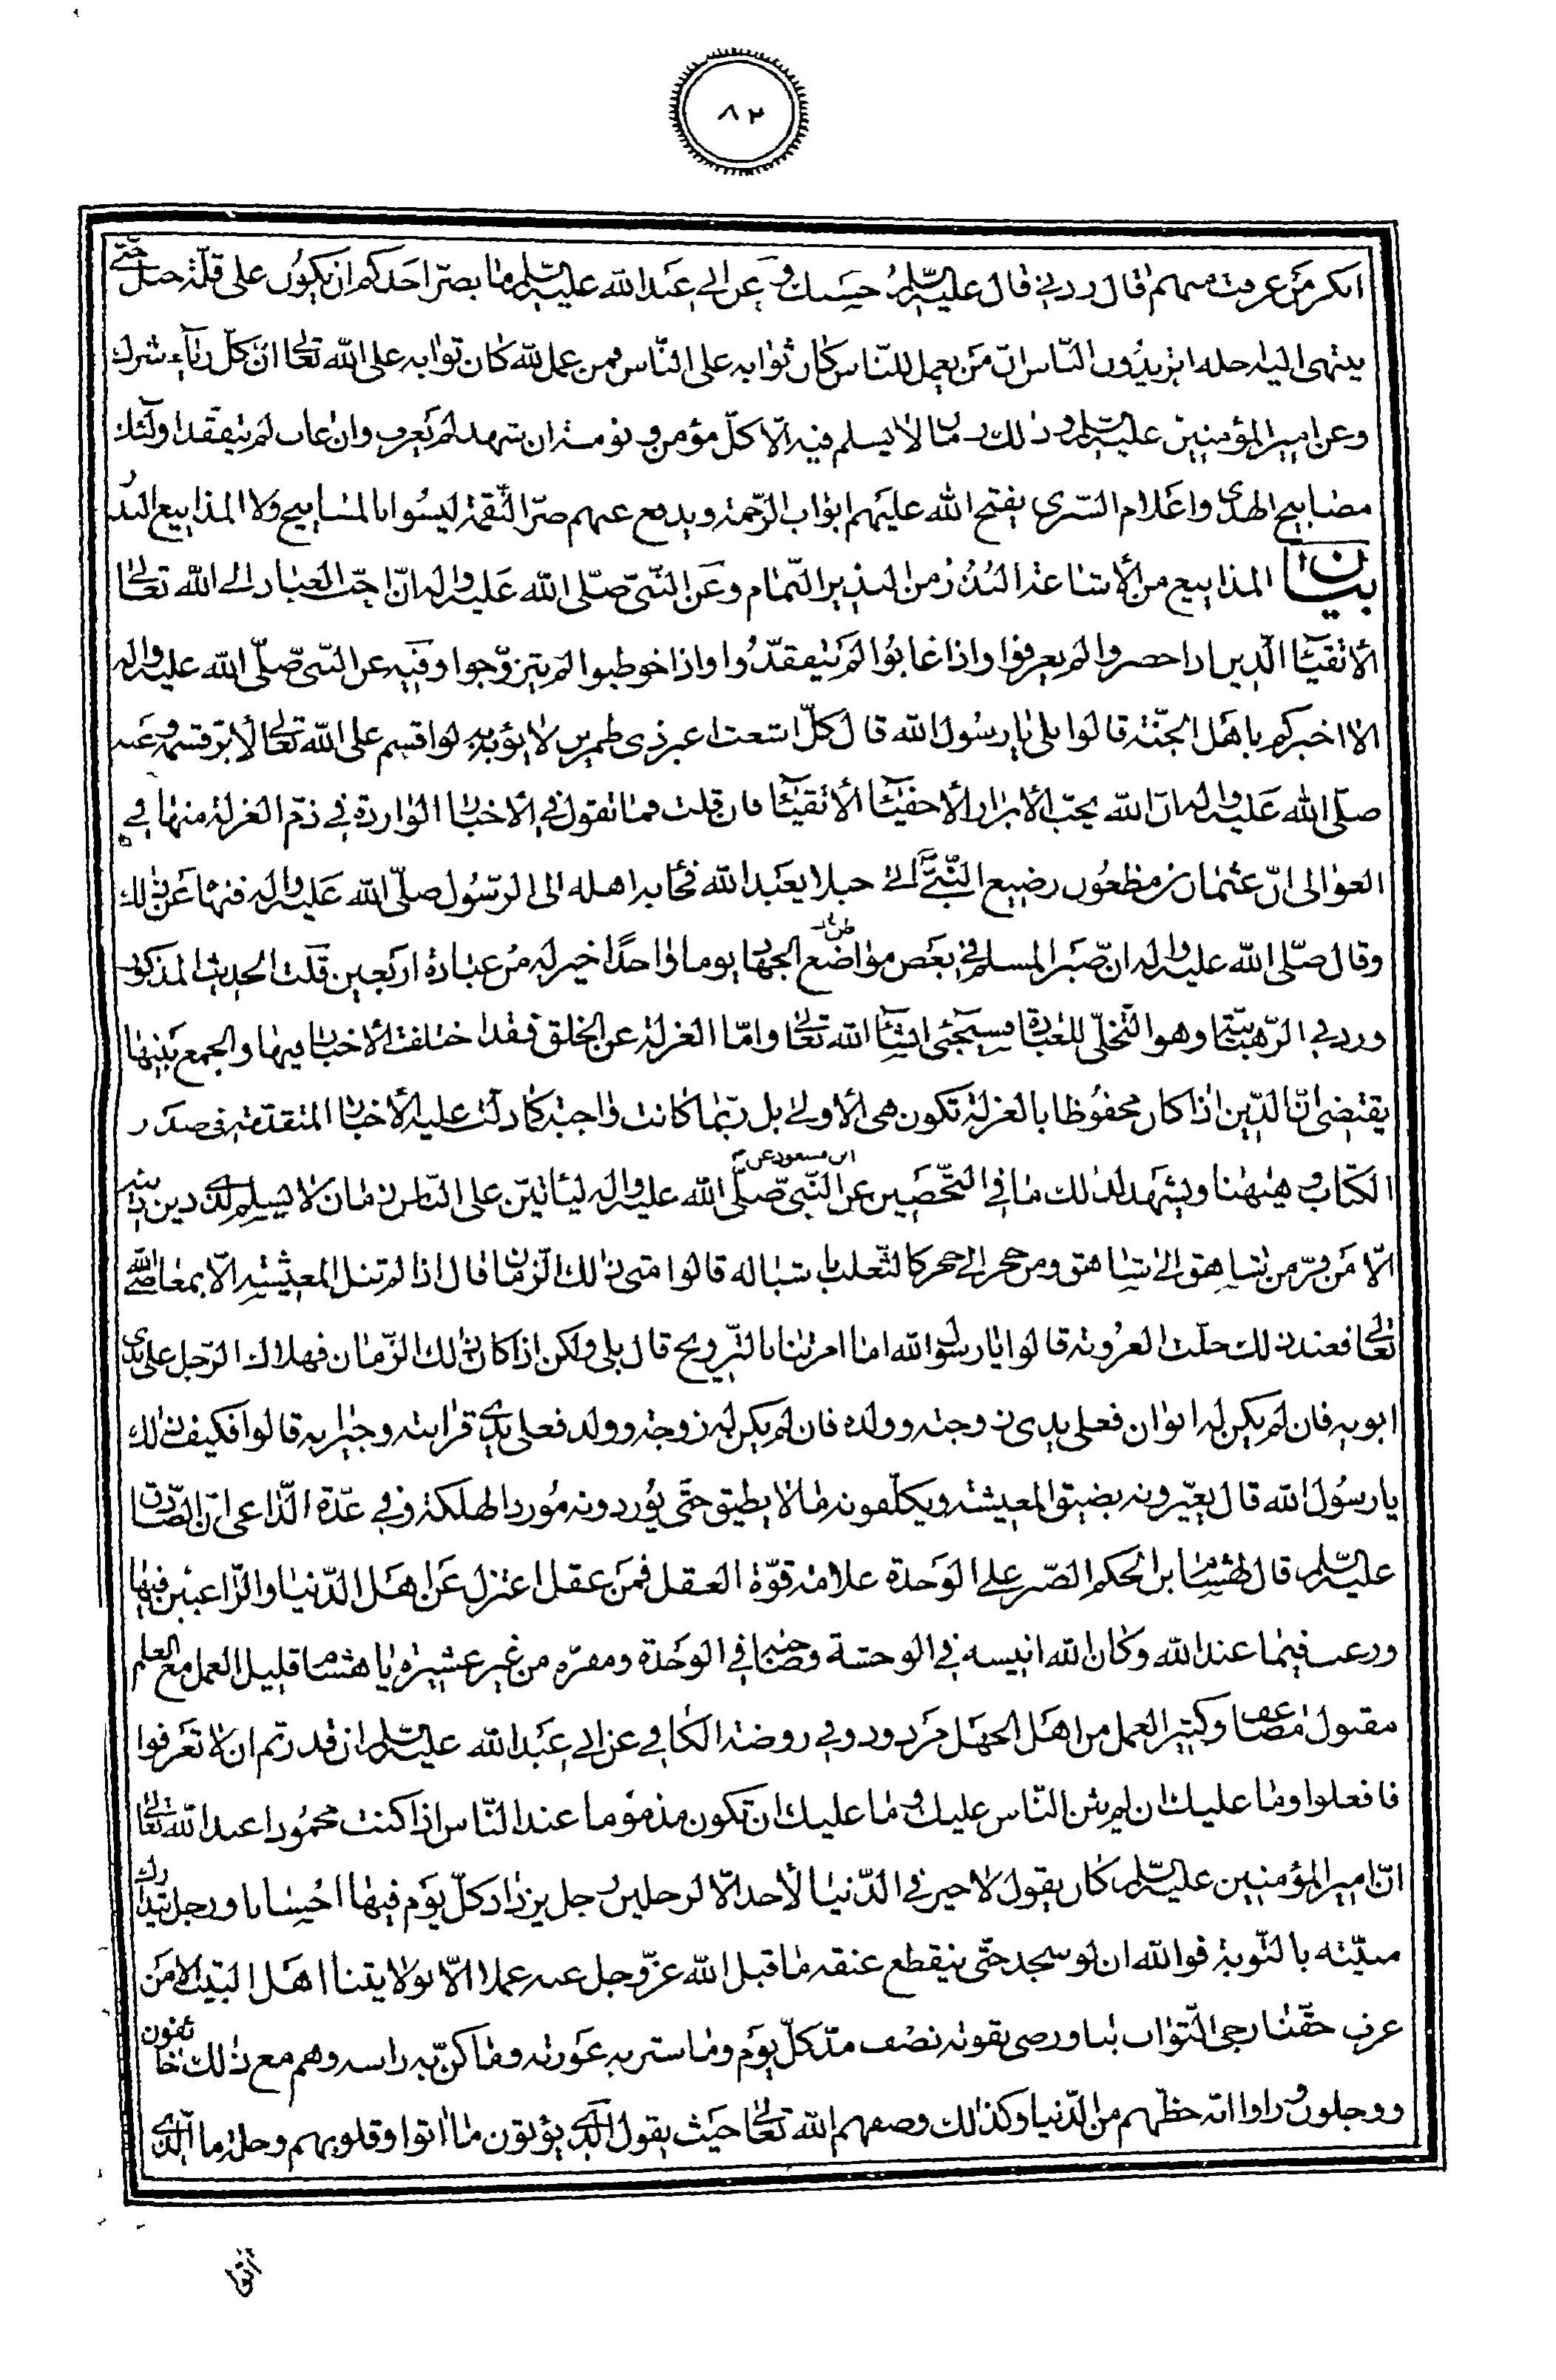 ٨٢
انكر من عرفت منهم قال زدني قال عليه السلام حسبك وعن ابي عبد الله عليه السلم ما يضر احدكم ان يكون على قلة جبل حتى
ينتهى اليه اجله اتريدون الناس ان من يعمل للناس كان ثوابه على الناس فمن عمل لله كان ثوابه على الله تعالى ان كل رياء شرك
وعن امير المؤمنين عليه السلم وذلك زمان لا يسلم فيه الا كل مؤمن نومة ان شهد لم يعرف وان غاب لم يتفقد اولئك
مصابيح الهدى واعلام السرى يفتح الله عليهم ابواب الرحمة ويدفع عنهم ضر النقمة ليسوا بالمسابيح ولا المذاييع البذر
بيان المذاييع من الاشاعة البذر من البذير النمام وعن النبى صلى الله عليه واله ان احب العباد الى الله تعالى
الاتقيآء الذين اذا حضروا لم يعرفوا واذا غابوا لم يتفقدوا واذا خطبوا لم يتزوجوا وفيه عن النبى صلى الله عليه واله
الا اخبركم باهل الجنة قالوا بلى يا رسول الله قال كل اشعث اغبر ذى طمرين لا يؤبه به لو اقسم على الله تعالى لابر قسمه وعنه
صلى الله عليه واله ان الله يحب الابرار الاخفيآء الاتقيآء فان قلت فما تقول فى الاخبار الواردة في ذم العزلة منها في
العوالى ان عثمان بن مظعون رضيع النبى اتى جبلا يعبد الله فجآء به اهله الى الرسول صلى الله عليه واله فنهاه عن ذلك
وقال صلى الله عليه واله ان صبر المسلم في بعض مواضع الجهاد يوما واحدا خير له من عبادة اربعين قلت الحديث المذكور
ورد في الرهبانية وهو التخلى للعبادة فسيجئ انشاء الله تعالى واما العزلة عن الخلق فقد اختلفت الاخبار فيها والجمع بينها
يقتضى ان الدين اذا كان محفوظا بالعزلة تكون هى الاولى بل ربما كانت واجبة كما دلت عليه الاخبار المتقدمة فى صدر
الكتاب وهيهنا ويشهد لذلك ما في التحصين عن ابن مسعود عن النبى صلى الله عليه واله ليأتين على الناس زمان لا يسلم لذى دين دينه
الا من فر من شاهق الى شاهق ومن حجر الى حجر كالثعلب باشباله قالوا متى ذلك الزمان قال اذا لم تنل المعيشة الا بمعاصى الله
تعالى فعند ذلك حلت العزوبة قالوا يا رسول الله اما امرتنا بالتزويج قال بلى ولكن اذا كان ذلك الزمان فهلاك الرجل على يدى
ابويه فان لم يكن له ابوان فعلى يدى زوجته وولده فان لم يكن له زوجة وولد فعلى يدى قرابته وجيرانه قالوا فكيف ذلك
يا رسول الله قال يعيرونه بضيق المعيشة ويكلفونه ما لا يطيق حتى يوردونه موارد الهلكة وفي عدة الداعى ان الصادق
عليه السلم قال لهشام بن الحكم الصبر على الوحدة علامة قوة العقل فمن عقل اعتزل عن اهل الدنيا والراغبين فيها
ورغب فيما عند الله وكان الله انيسه في الوحشة وصاحبه في الوحدة ومعزه من غير عشيرة يا هشام قليل العمل مع العلم
مقبول مضاعف وكثير العمل من اهل الجهل مردود وفي روضة الكافي عن ابى عبد الله عليه السلم ان قدرتم ان لا تعرفوا
فافعلوا وما عليك ان لم يثن الناس عليك وما عليك ان تكون مذموما عند الناس اذا كنت محمودا عند الله تعالى
ان امير المؤمنين عليه السلم كان يقول لا خير في الدنيا الا لاحد رجلين رجل يزداد كل يوم فيها احسانا ورجل يتدارك
منيته بالتوبة فوالله ان لو سجد حتى ينقطع عنقه ما قبل الله عز وجل منه عملا الا بولايتنا اهل البيت الا من
عرف حقنا رجى الثواب بنا ورضى بقوته نصف مد كل يوم وما ستر به عورته وما اكن به راسه وهم مع ذلك خائفون
ووجلون ودوا انه حظهم من الدنيا وكذلك وصفهم الله تعالى حيث يقول الذين يؤتون ما اتوا وقلوبهم وجلة ما الذى
اتوا